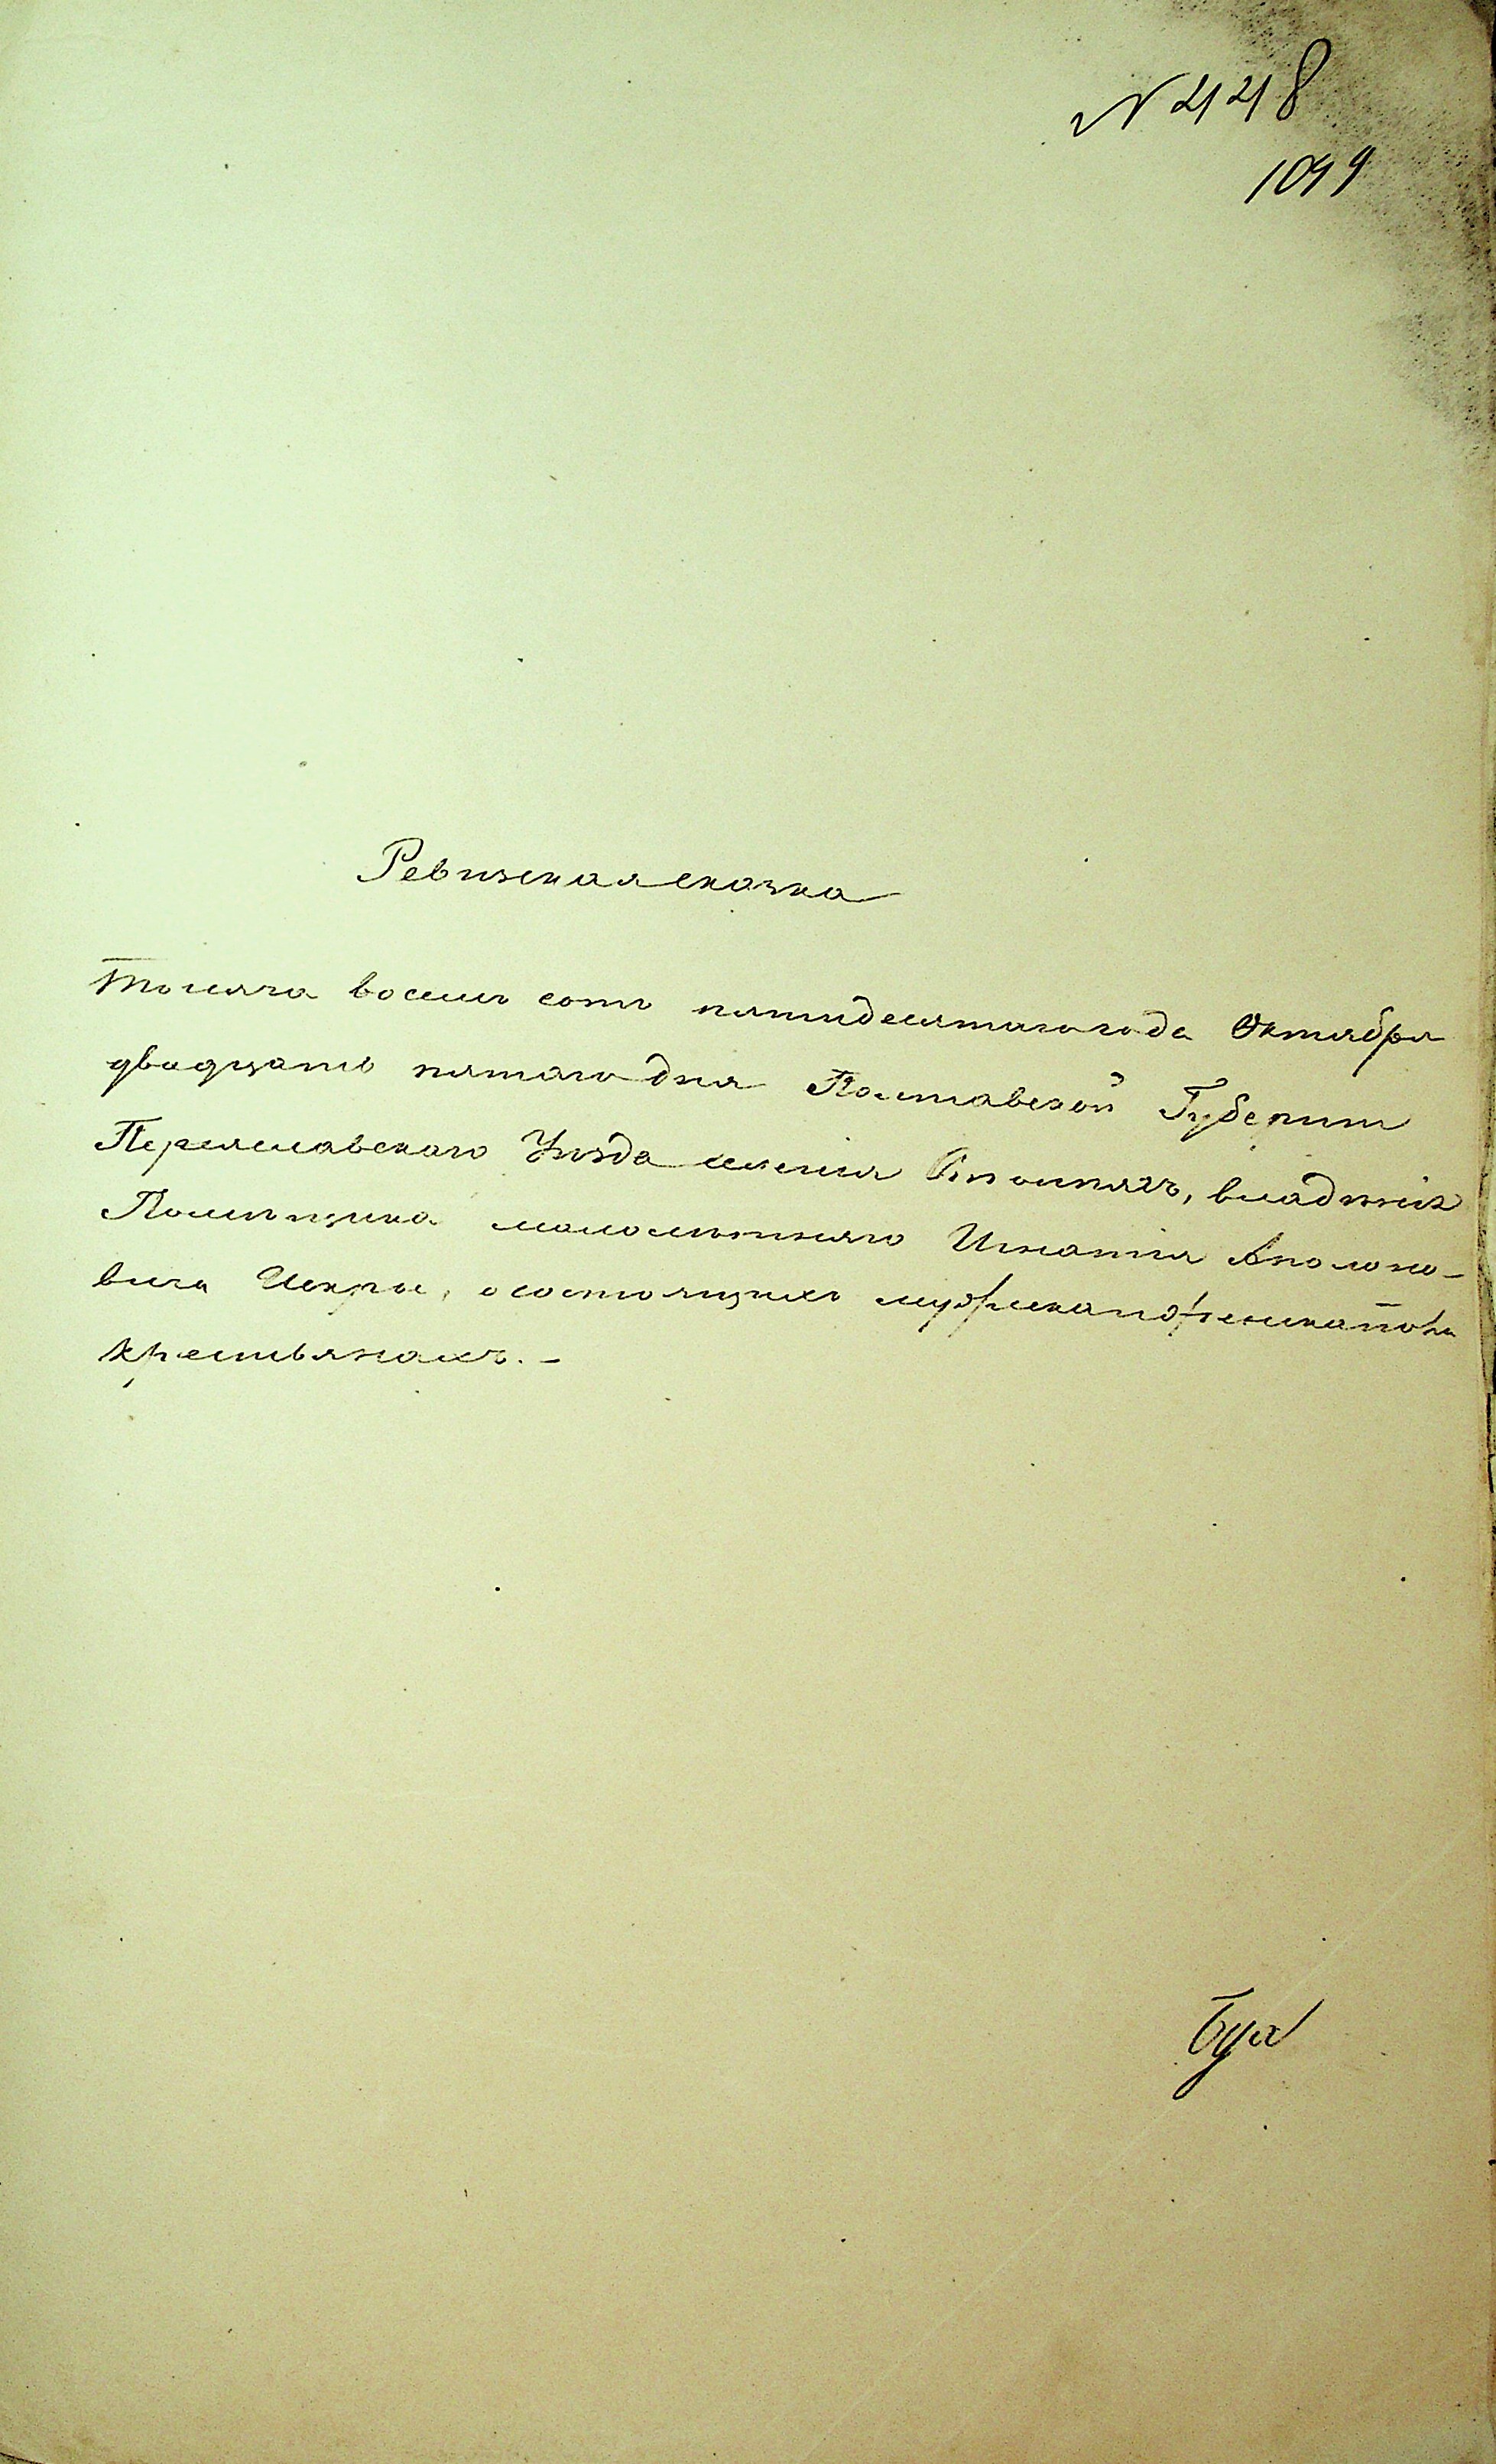 N 448
1099
Ревизская сказка
Тысяча восемь сотъ пятидесятого года Октября
двадцать пятаго дня Полтавской Губернии
Переяславскаго Уезда имения, владения
Помещика малолетняго Игнатия Аполоно-
вича Искры, о состоящихъ мужеска и женска пола
крестьянахъ. –